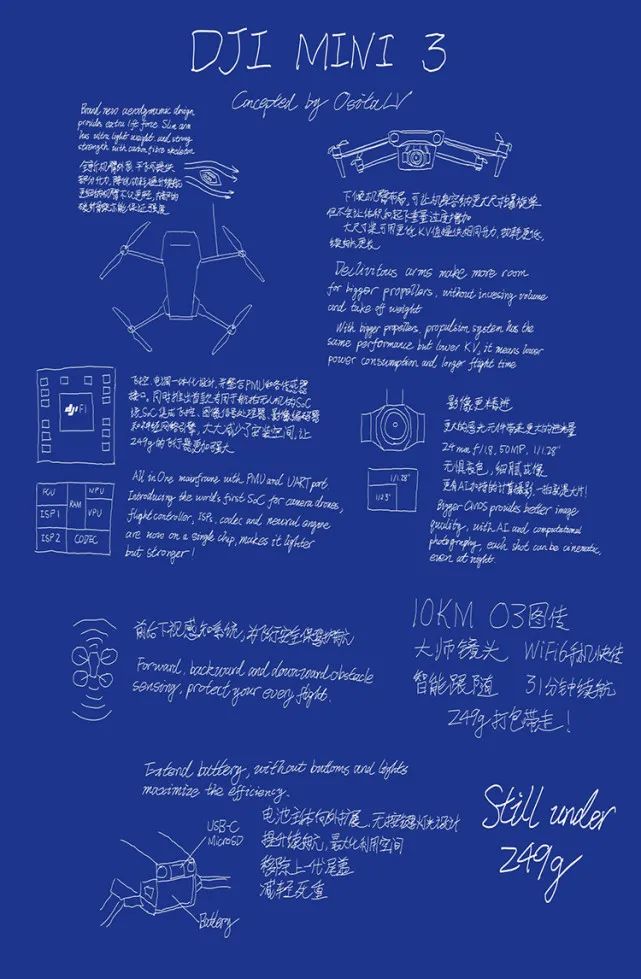 DJI MINI 3
Concepted by OsitaLV
Brand new aerodynamic design
provides extra life force. Slim arm
has ultra light weight and strong
strength with carbon fibre skeleton
下倾机臂布局,可让机身容纳更大尺寸螺旋桨
但不会让体积和起飞重量过度增加
大尺寸桨可用更低KV值提供相同升力,功耗更低,
续航更长
Declivitous arms make more room
for bigger propellers, without incresing volume
and take off weight
With bigger propellers, propulsion system has the
same performance but lower KV, it means lower
power consumption and longer flight time
dji FI
飞控、电调一体化设计,并整合PMU和各传感器
接口,同时推出首款专用于航拍无人机的SoC
该SoC集成飞控、图像信号处理器、影像编码器
和神经网络引擎,大大减小了安装空间,让
249g的飞行器更加强大
FCU
NPU
RAM
ISP1
VPU
ISP2
CODEC
All in One mainframe with PMU and UART port
Introducing the world's first SoC for camera drones,
flight controller, ISPs, codec and neural engine
are now on a single chip, makes it lighter
but stronger!
影像更精进
更大的感光元件带来更大的进光量
24mm f/1.8, 50MP, 1/1.28"
无惧夜色,细腻成像
更有AI加持的计算摄影,一拍就是大片!
1/1.28"
1/2.3"
Bigger CMOS provides better image
quility, with AI and computational
photography, each shot can be cinematic,
even at night.
前后下视感知系统,为飞行安全保驾护航
Forward, backward and downward obstacle
sensing, protect your every flight.
10KM O3图传
大师镜头 WiFi6手机快传
智能跟随 31分钟续航
249g打包带走!
Extend battery, without buttoms and lights
maximize the efficiency.
USB-C
MicroSD
Battery
电池主体向外扩展,无按键灯光设计
提升续航,最大化利用空间
移除上一代尾盖
减轻死重
Still under
249g